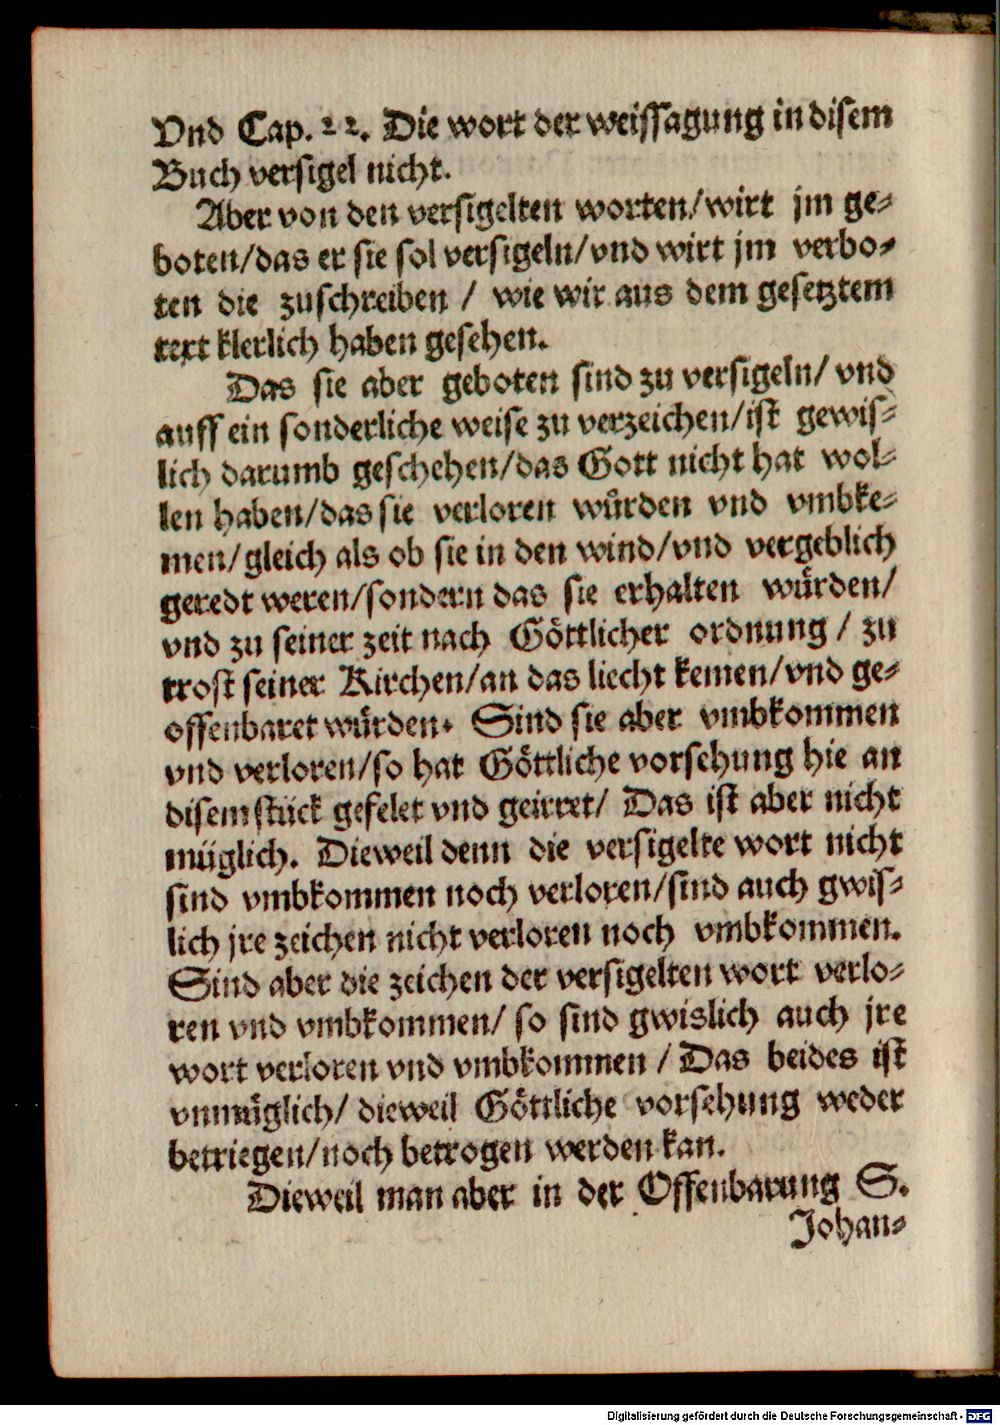 Vnd Cap. 22. Die wort der weissagung in disem
Buch versigel nicht.
Aber von den versigelten worten/wirt jm ge⸗
boten/das er sie sol versigeln/vnd wirt jm verbo⸗
ten die zuschreiben / wie wir aus dem gesetztem
text klerlich haben gesehen.
Das sie aber geboten sind zu versigeln/ vnd
auff ein sonderliche weise zu verzeichen/ist gewis⸗
lich darumb geschehen/das Gott nicht hat wol⸗
len haben/das sie verloren wuͤrden vnd vmbke⸗
men/gleich als ob sie in den wind/vnd vergeblich
geredt weren/sondern das sie erhalten wuͤrden/
vnd zu seiner zeit nach Goͤttlicher ordnung / zu
trost seiner Kirchen/an das liecht kemen/vnd ge⸗
offenbaret wuͤrden. Sind sie aber vmbkommen
vnd verloren/so hat Goͤttliche vorsehung hie an
disem stück gefelet vnd geirret/ Das ist aber nicht
müglich. Dieweil denn die versigelte wort nicht
sind vmbkommen noch verloren/sind auch gwis⸗
lich jre zeichen nicht verloren noch vmbkommen.
Sind aber die zeichen der versigelten wort verlo⸗
ren vnd vmbkommen/ so sind gwislich auch jre
wort verloren vnd vmbkommen / Das beides ist
vnmuͤglich/ dieweil Goͤttliche vorsehung weder
betriegen/noch betrogen werden kan.
Dieweil man aber in der Offenbarung S.
Johan⸗
Digitalisierung gefördert durch die Deutsche Forschungsgemeinschaft - DFG